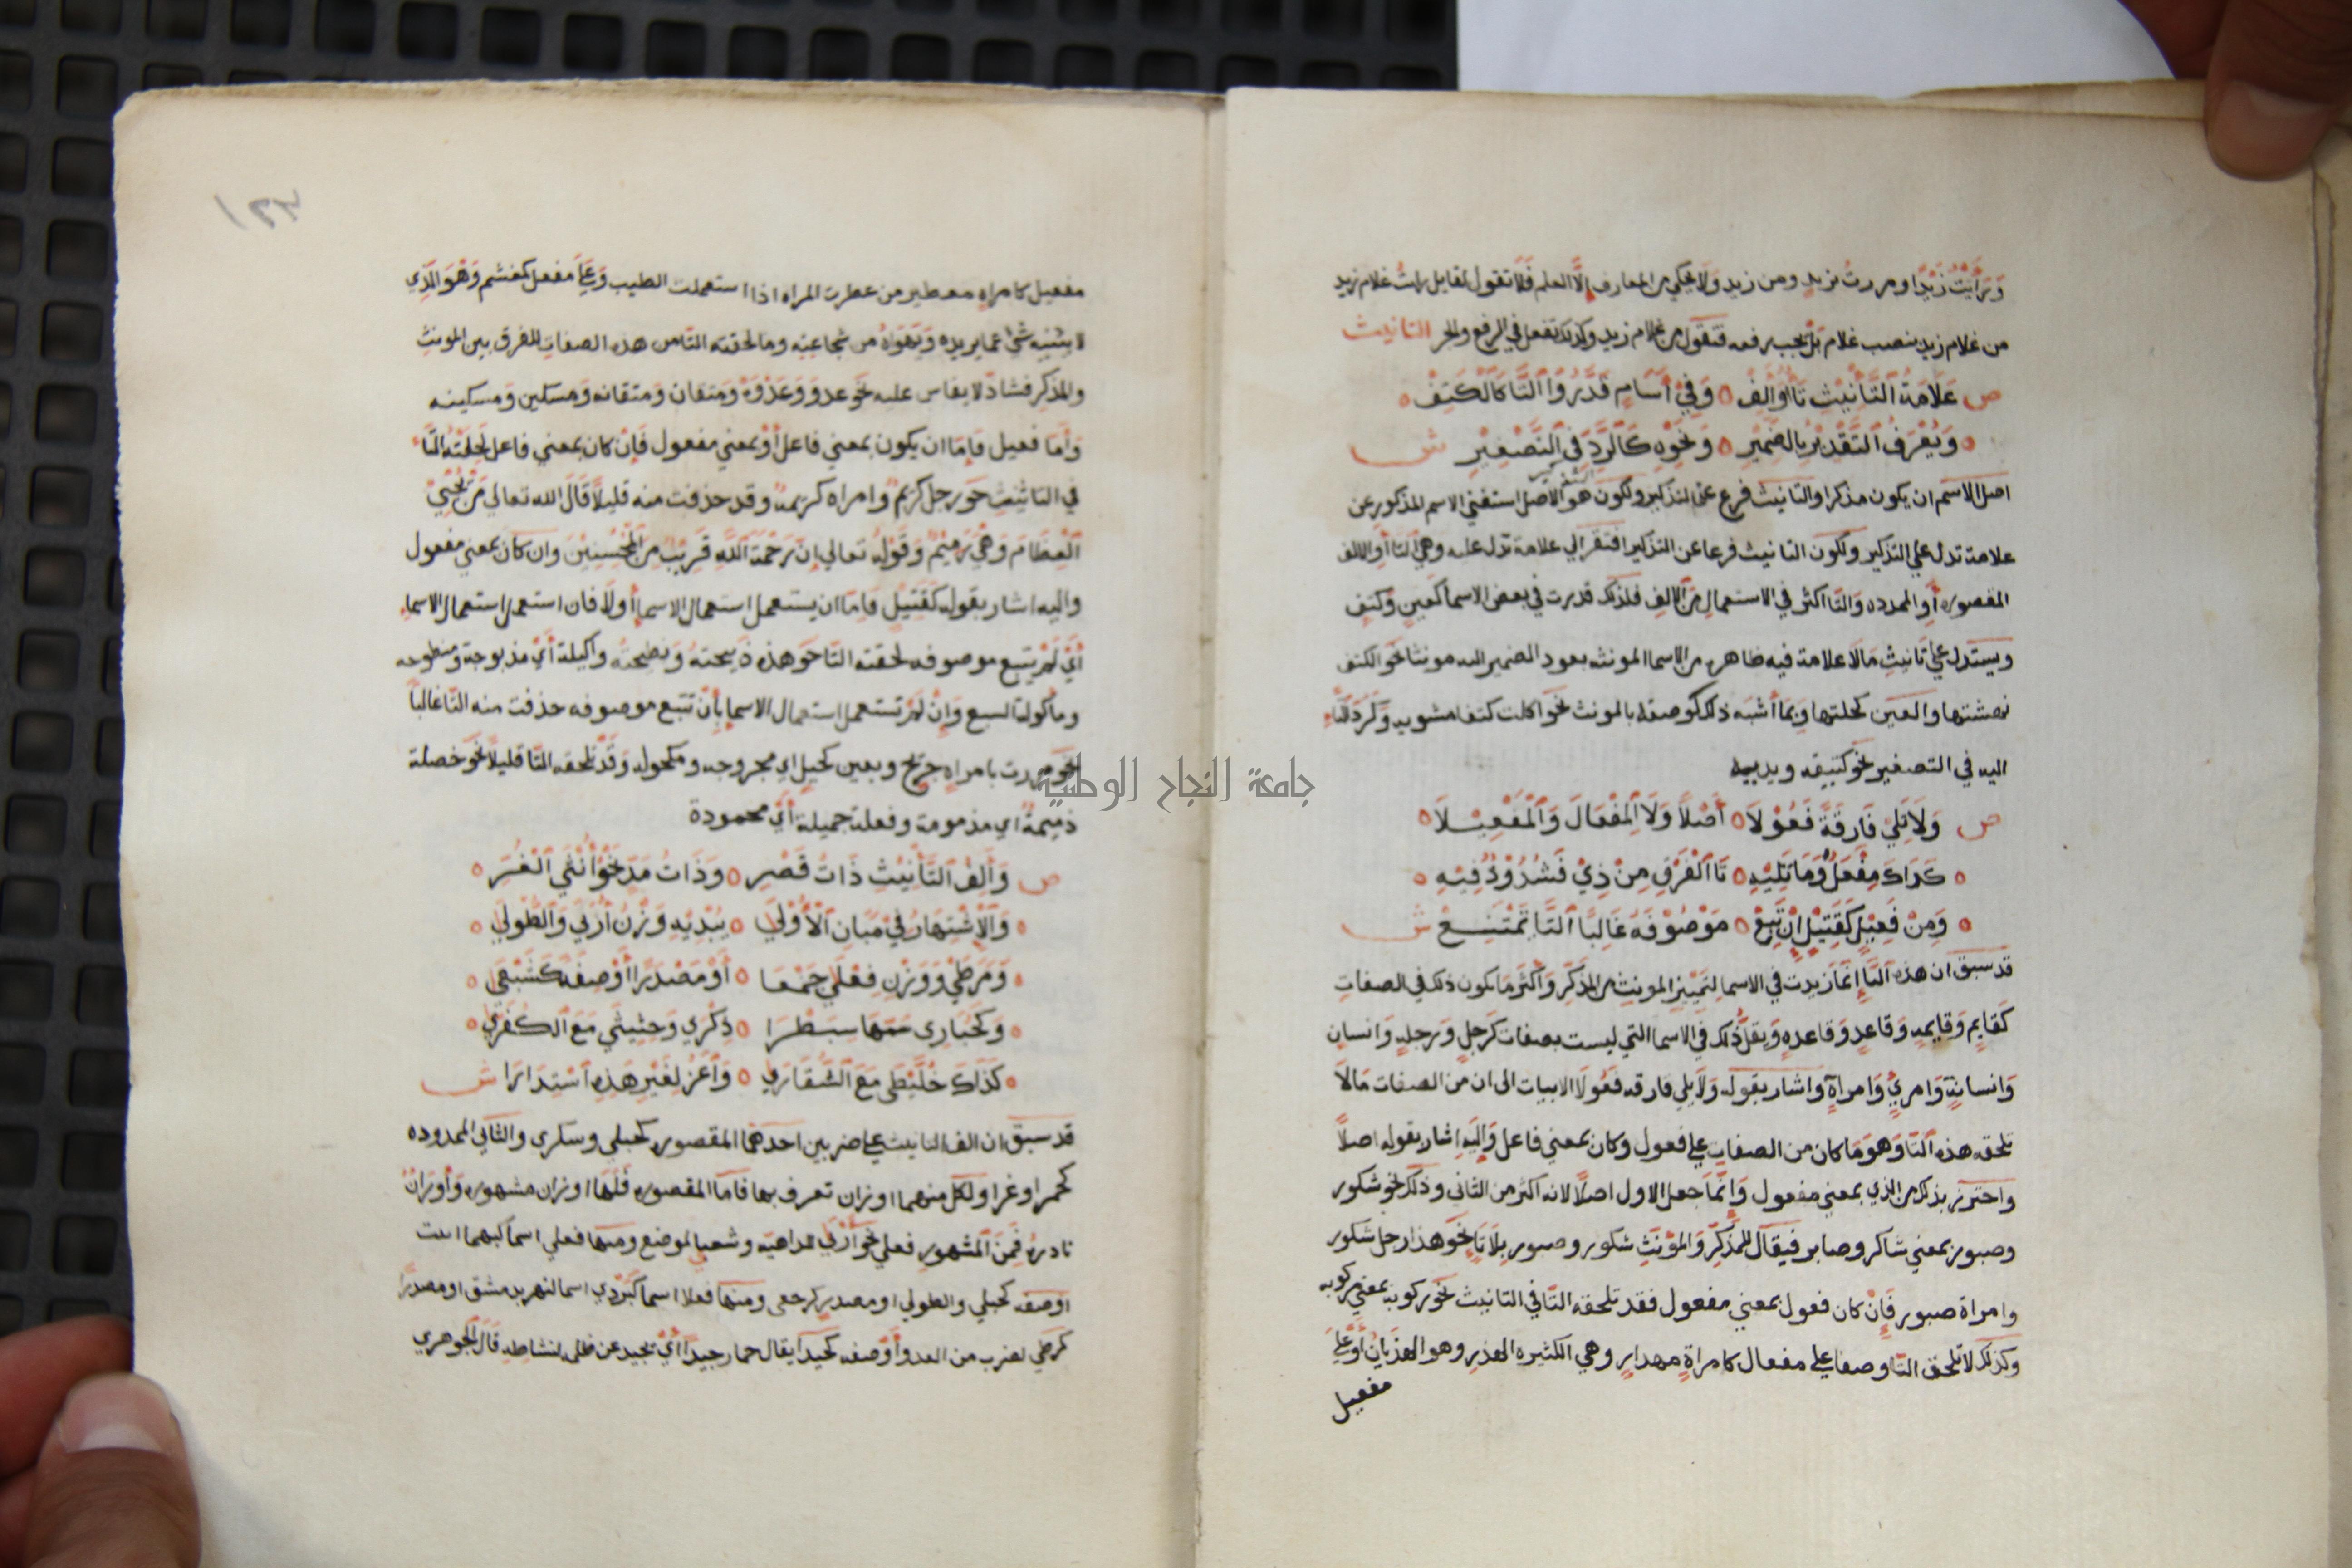 ورايت زيدا ومررت بزيد ومن زيد ولا يحكي من المعارف إلا العلم فلا تقول لقايل رايت غلام زيد
من غلام زيد بنصب غلام بل يجب رفعه فتقول من غلام زيد وكذلك تفعل في الرفع والجر التانيث
ص عَلَامَةُ التَّأنِيْثِ تَاأوْأَلِفُ وَفِيْ أَسَامٍ قَدَّرُوا التَّا كَالْكَتِفْ
وَيُعْرَفُ التَّقْدِيْرُ بِالضَّمِيْرِ وَنَحْوِهِ كَالرَّدِّ فى التَّصْغِيْرِ ش
اصل الاسم ان يكون مذكرا والتانيث فرع عن التذكير ولكون التذكير هو الاصل استغني الاسم المذكور عن
علامة تدل علي التذكير ولكون التانيث فرعا عن التذكير افتقر الي علامة تدل عليه وهي التا أو الالف
المقصوره أو الممدوده والتا اكثر في الاستعمال من الالف فلذلك قدرت في بعض الاسما كعين وكتف
ويستدل علي تانيث مالا علامة فيه ظاهره من الاسما المونثه بعود الضمير اليه مونثا نحو الكتف
نهشتها والعين كحلتها وبما أشبه ذلك كوصفه بالمونث نحو اكلت كتفا مشويه وكرد التاء
اليه في التصغير نحو كتيفه ويدييه
ص وَلَا تَلِيْ فَارِقَةً فَعُوْلَا أَصْلًا وَلَا الْمِفْعَالَ وَالْمِفْعِيْلَا
كَذَاكَ مِفْعَلٌ وَمَا تَلِيْهِ تَا الْفَرْقِ مِنْ ذِيْ فَشُذُوْذٌ فِيْهِ
وَمِنْ فَعِيْلٍ كَقَتِيْلٍ إنْ تَبِعْ مَوْصُوْفَهُ غَالِبًا التَّا تَمْتَنِعْ ش
قد سبق ان هذه التاء انما زيدت في الاسما لتمييز المونث من المذكر وأكثر ما يكون ذلك في الصفات
كقايم وقايمه وقاعد وقاعده ويقل ذلك في الاسما التي ليست بصفات كرجل ورجله وانسان
وانسانة وامري وامراة واشار بقوله ولا يلي فارقه فعولا الابيات الى ان من الصفات مالا
تلحقه هذه التا وهو ما كان من الصفات علي فعول وكان بمعني فاعل واليه اشار بقوله اصلا
واحترز بذلك من الذي بمعني مفعول وانما جعل الاول اصلا لانه اكثر من الثاني وذلك نحو شكور
وصبور بمعني شاكر وصابر فيقال للمذكر والمؤنث شكور وصبور بلا تا نحو هذا رجل شكور
وامراة صبور فإن كان فعول بمعني مفعول فقد تلحقه التا في التانيث نحو ركوبه بمعني مركوبه
وكذلك لا تلحق التا وصفا علي مفعال كامراة مهدار وهي الكثيره الهذر وهو الهذيان أو علي
مفعيل
١٢٣
مفعيل كامراه معطير من عطرت المراه اذا استعملت الطيب وعلي مفعل كمغشم وهو الذي
لا يثنيه شي عما يريده ويهواه من شجاعته وما لحقته التا من هذه الصفات للفرق بين المونث
والمذكر فشاذ لا يقاس عليه نحو عدو وعدوه وميقان وميقانه ومسكين ومسكينه
وأما فعيل فإما ان يكون بمعني فاعل أو بمعني مفعول فإن كان بمعني فاعل لحقته التاء
في التانيث نحو رجل كريم وامراه كريمه وقد حذفت منه قليلا قال الله تعالي من يحيي
العظام وهي رميم وقوله تعالي إن رحمة الله قريب من المحسنين وان كان بمعني مفعول
واليه اشار بقوله كقتيل فاما ان يستعمل استعمال الاسما أو لا فان استعمل استعمال الاسماء
أي لم يتبع موصوفه لحقته التا نحو هذه ذبيحته ونطيحته واكيلة أي مذبوحة ومنطوحه
وماكولة السبع وإن لم تستعمل استعمال الاسما بأن تتبع موصوفه حذفت منه التا غالبا
نحو مررت بامراه جريح وبعين كحيل اي مجروحه ومكحوله وقد تلحقه التا قليلا نحو خصلة
ذميمة اي مذمومة وفعلة جميلة أي محمودة
ص وَأَلِفُ التَّأنِيْثِ ذَاتُ قَصْرِ وَذَاتُ مَدٍّ نَحْوُ أُنْثَي الْغُرِّ
وَالْاِشْتِهَارُ فِيْ مَبَانِ الْأُوْلَي يُبْدِيْهِ وَزْنُ أُرَبَي وَالطُّوْلَي
وَمَرَطَيْ وَوَزْنِ فَعْلَي جَمْعَا أَوْ مَصْدَرًا أَوْ صِفَةً كَشَبْعَى
وَكَحُبَارَى سُمَّهَا سِبَطْرَا ذِكْرَي وَحِثِيْثَي مَعَ الْكُفُرَّي
كَذَاكَ خُلَّيْطَى مَعَ الشُّقَارَي وَاعْزُ لِغَيْرِ هَذِهِ اسْتِنْدَارَا ش
قد سبق ان الف التانيث علي ضربين احدهما المقصوره كحبلي وسكري والثاني الممدوده
كحمرا وغرا ولكل منهما اوزان تعرف بها فاما المقصوره فلها اوزان مشهوره وأوزان
نادرة فمن المشهور فعلي نحو أربي للداهيه وشعبي لموضع ومنها فعلي اسما كبهما لنبت
اوصفه كحبلي والطولي او مصدر كرجعى ومنها فعلا اسما كبردي اسما لنهر بدمشق او مصدرا
كمرطي لضرب من العدو أو صفه كحيدا يقال حمار حيدا أي يحيد عن ظله لنشاطه قال الجوهري
جامعة النجاح الوطنية